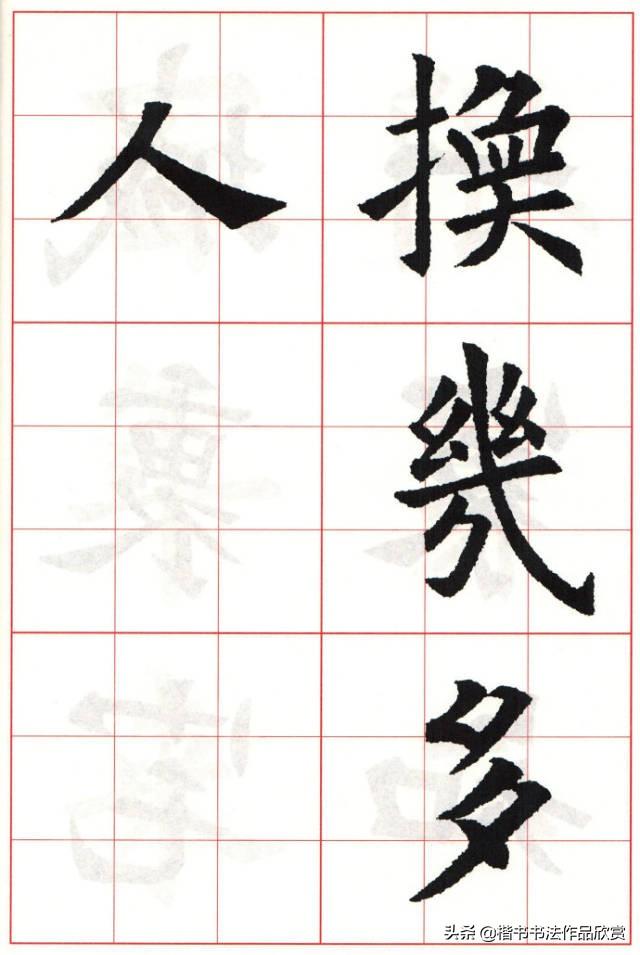 換幾多
人
头条 @楷书书法作品欣赏